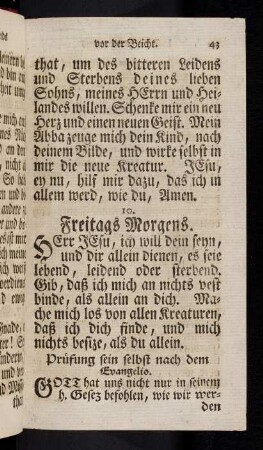 vor der Beicht. 43
that, um des bitteren Leidens
und Sterbens deines lieben
Sohns, meines HErrn und Hei-
landes willen. Schenke mir ein neu
Herz und einen neuen Geist. Mein
Abba zeuge mich dein Kind, nach
deinem Bilde, und wirke selbst in
mir die neue Kreatur. JEsu,
ey nu, hilf mir dazu, daß ich in
allem werd, wie du, Amen.
10.
Freitags Morgens.
HErr JEsu, ich will dein seyn,
und dir allein dienen, es seie
lebend, leidend oder sterbend.
Gib, daß ich mich an nichts vest
binde, als allein an dich. Ma-
che mich los von allen Kreaturen,
daß ich dich finde, und mich
nichts besize, als du allein.
Prüfung sein selbst nach dem
Evangelio.
GOTT hat uns nicht nur in seinem
h. Gesez befohlen, wie wir wer-
den